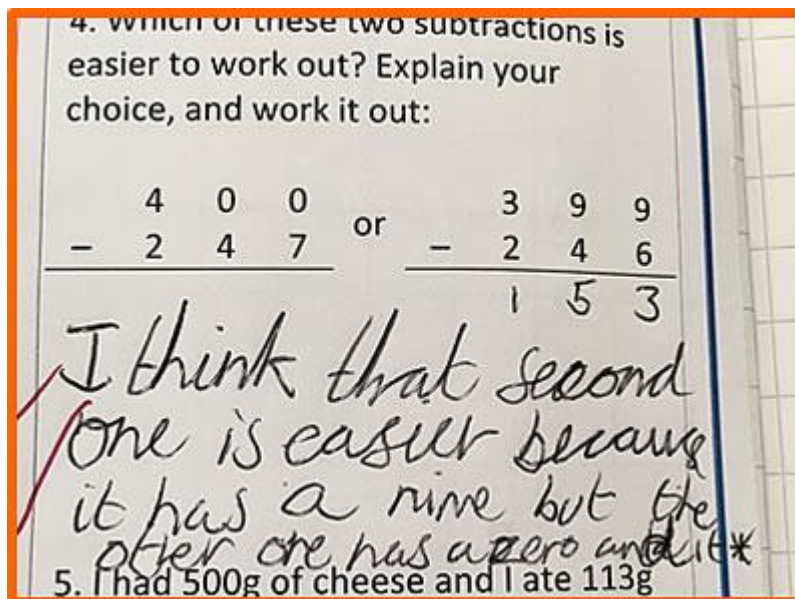 4. Which of these two subtractions is
easier to work out? Explain your
choice, and work it out:
4 0 0 or 3 9 9
- 2 4 7 - 2 4 6
1 5 3
I think that second
one is easier because
it has a nine but the
other one has a zero and it*
5. I had 500g of cheese and I ate 113g